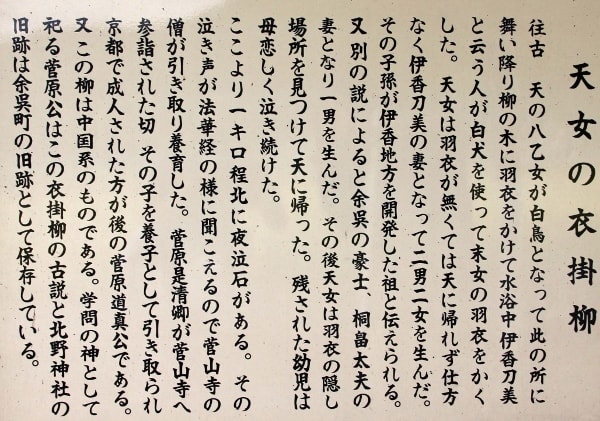 天女の衣掛柳
往古　天の八乙女が白鳥となって此の所に
舞い降り柳の木に羽衣をかけて水浴中伊香刀美
と云う人が白犬を使って末女の羽衣をかく
した。天女は羽衣が無くては天に帰れず仕方
なく伊香刀美の妻となって二男二女を生んだ。
その子孫が伊香地方を開発した祖と伝えられる。
又別の説によると余呉の豪士、桐畠太夫の
妻となり一男を生んだ。その後天女は羽衣の隠し
場所を見つけて天に帰った。残された幼児は
母恋しく泣き続けた。
ここより一キロ程北に夜泣石がある。その
泣き声が法華経の様に聞こえるので菅山寺の
僧が引き取り養育した。菅原是清卿が菅山寺へ
参詣された切　その子を養子として引き取られ
京都で成人された方が後の菅原道真公である。
又この柳は中国系のものである。学問の神として
祀る菅原公はこの衣掛柳の古説と北野神社の
旧跡は余呉町の旧跡として保存している。